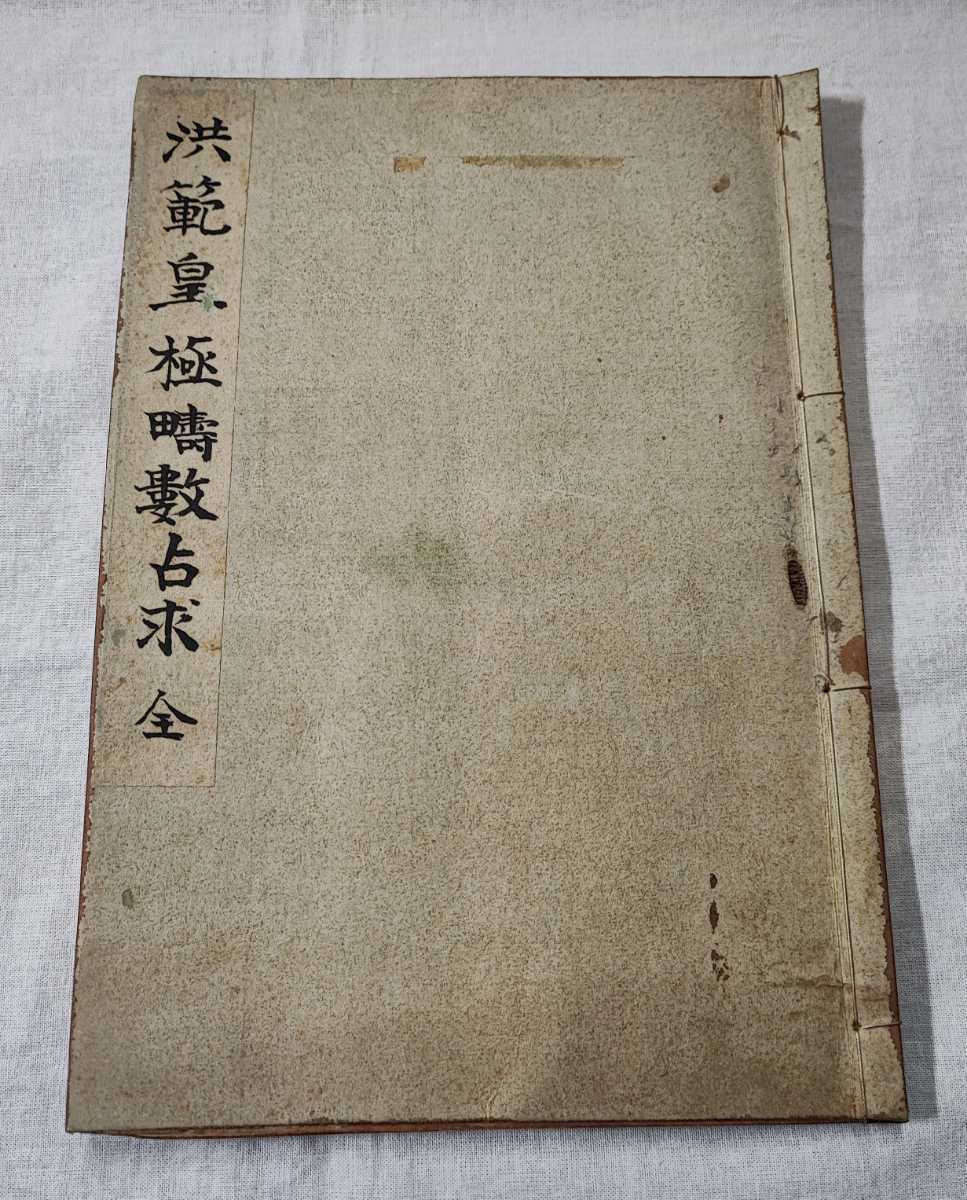 洪範皇極疇數占求 全